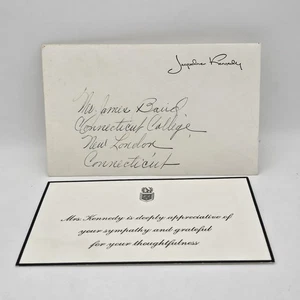 Jacqueline Kennedy
Mr. James Baird
Connecticut College
New London
Connecticut
Mrs. Kennedy is deeply appreciative of
your sympathy and grateful
for your thoughtfulness